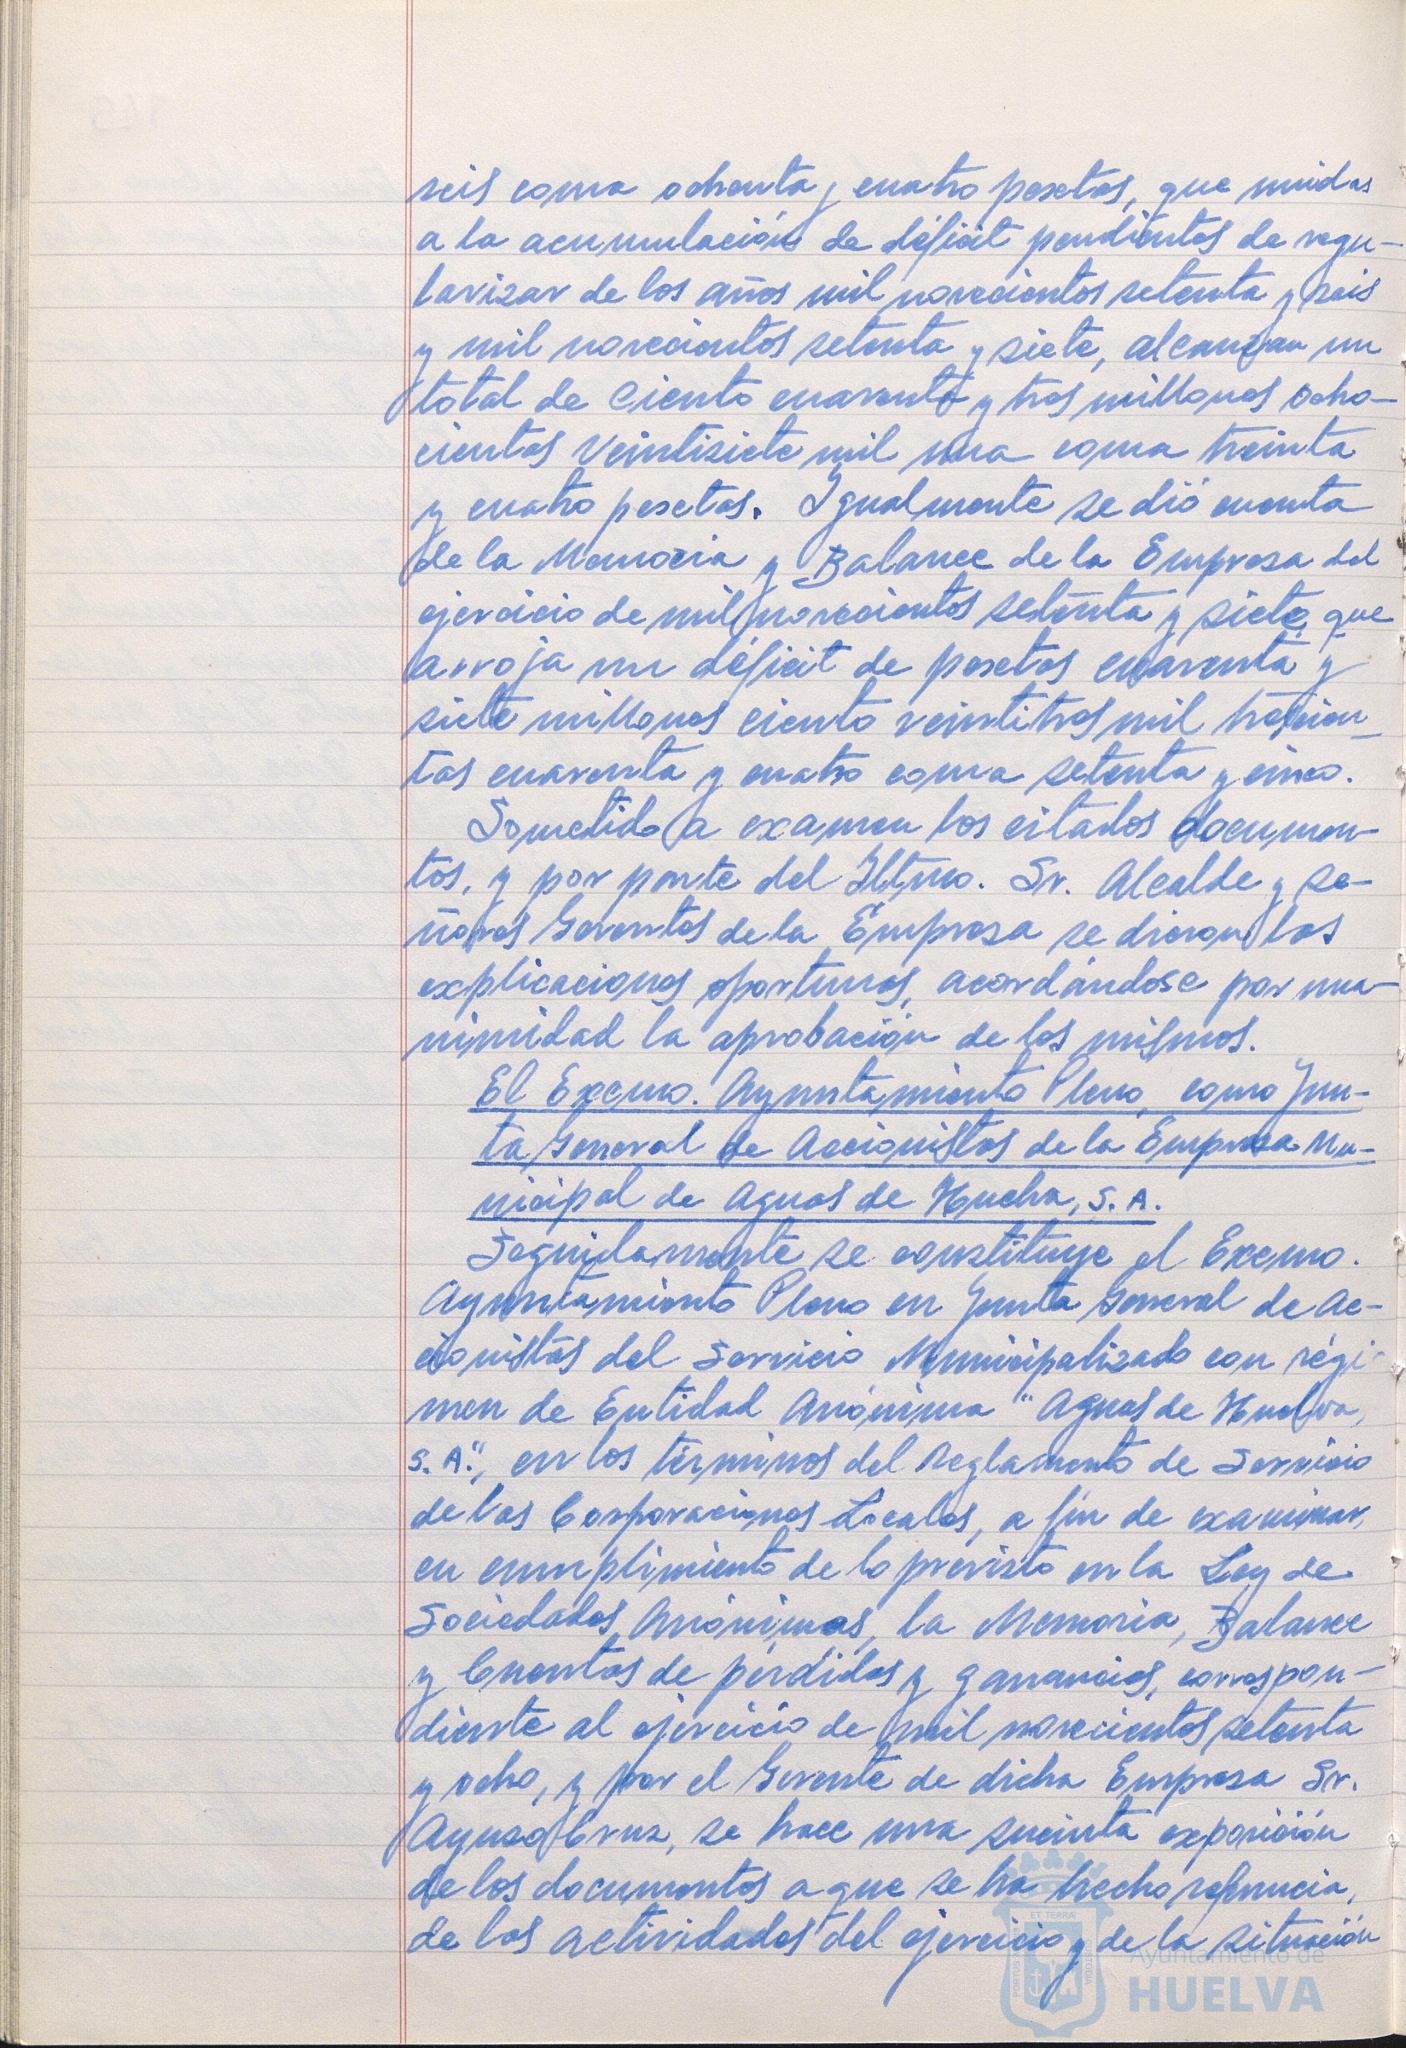 seis coma ochenta y cuatro pesetas, que unidas
a la acumulación de déficit pendientes de regu-
larizar de los años mil novecientos setenta y seis
y mil novecientos setenta y siete, alcanzan un
total de Ciento cuarenta y tres millones ocho-
cientas Veintisiete mil una coma treinta
y cuatro pesetas. Igualmente se dió cuenta
de la Memoria y Balance de la Empresa del
ejercicio de mil novecientos setenta y siete, que
arroja un déficit de pesetas cuarenta y
siete millones ciento veintitres mil trescien-
tas cuarenta y cuatro coma setenta y cinco.
Sometido a examen los citados documen-
tos, y por parte del Iltmo. Sr. Alcalde y se-
ñores Gerentes de la Empresa se dieron las
explicaciones oportunas, acordándose por una-
nimidad la aprobación de los mismos.
El Excmo. Ayuntamiento Pleno, como Jun-
ta General de Accionistas de la Empresa Mu-
nicipal de Aguas de Huelva, S.A.
Seguidamente se constituye el Excmo.
Ayuntamiento Pleno en Junta General de Ac-
cionistas del Servicio Municipalizado con régi-
men de Entidad Anónima "Aguas de Huelva,
S.A.", en los términos del Reglamento de Servicio
de las Corporaciones Locales, a fin de examinar,
en cumplimiento de lo previsto en la Ley de
Sociedades Anónimas, la Memoria, Balance
y Cuentas de pérdidas y ganancias, correspon-
diente al ejercicio de mil novecientos setenta
y ocho, y por el Gerente de dicha Empresa Sr.
Ayuso Cruz, se hace una sucinta exposición
de los documentos a que se ha hecho referencia,
de las actividades del ejercicio y de la situación
Ayuntamiento de
HUELVA